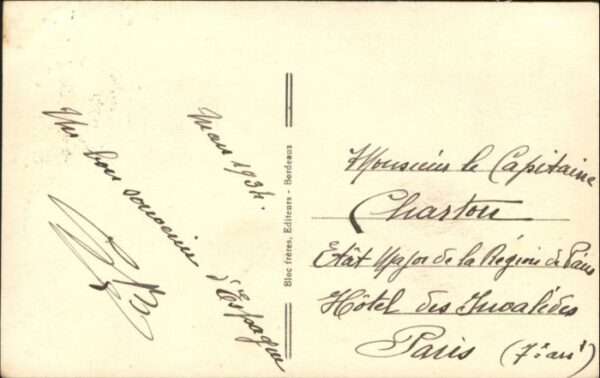 Mars 1934.
Un bon souvenir
d'Espagne
Bloc frères, Editeurs - Bordeaux
Monsieur le Capitaine
Charton
Etât Major de la Région de Paris
Hôtel des Invalides
Paris (7e arrt)